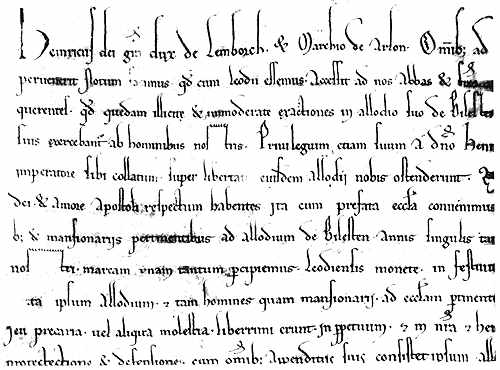 Heinricus dei gra dux de Lemborch. & Marchio de Arlon. Omib; ad
pervenerit notum facimus qd cum leodii essemus. Accessit ad nos Abbas &
querentes. qd quedam illicite & inmoderate exactiones in allodio suo de Bilesten
suis exercebant ab hominibus nostris. Privilegium etiam suum a dno Henr
imperatore sibi collatum. super libertate eiusdem Allodii nobis ostenderunt.
dei & amore Apostoli respectum habentes ita cum prefata ecclia convenimus
b; & mansionariis pertinentibus ad allodium de Bilesten. Annis singulis
nostri marcam unam tantum percipiemus. Leodiensis monete. in festum
ita ipsum allodium. & tam homines quam mansionarii. ad eccliam pertinent
seu precaria. vel aliqua molestia. liberrimi erunt. in ppetuum. & in nra & her
protectione & defensione. cum omib; Atvenditiis suis consistet ipsum all